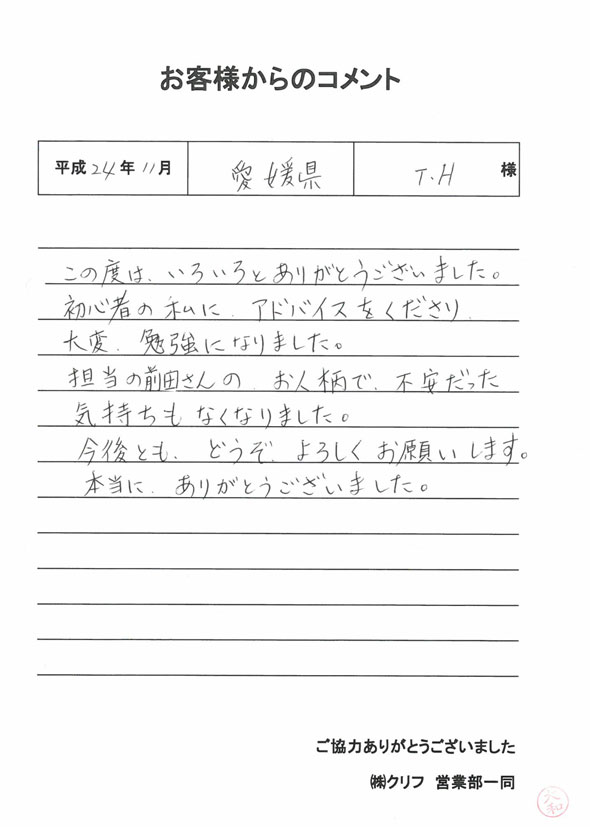 お客様からのコメント
平成24年11月 愛媛県 T.H 様
この度は、いろいろとありがとうございました。
初心者の私に、アドバイスをくださり、
大変、勉強になりました。
担当の前田さんの、お人柄で、不安だった
気持ちもなくなりました。
今後とも、どうぞ、よろしくお願いします。
本当に、ありがとうございました。
ご協力ありがとうございました
㈱クリフ 営業部一同